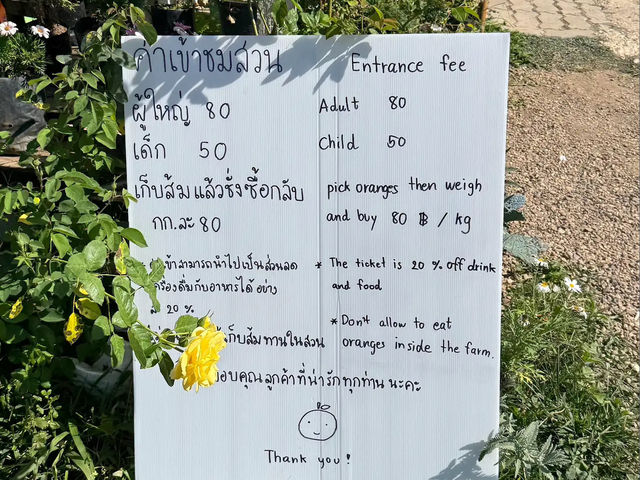 ค่าเข้าชมสวน
Entrance fee
ผู้ใหญ่ 80
Adult 80
เด็ก 50
Child 50
เก็บส้มแล้วชั่งซื้อกลับ
กก.ละ 80
pick oranges then weigh
and buy 80 ฿ / kg
เข้าสามารถนำไปเป็นส่วนลด
เครื่องดื่มกับอาหารได้ อย่าง
ละ 20 %
* The ticket is 20 % off drink
and food
เก็บส้มทานในสวน
* Don't allow to eat
oranges inside the farm.
ขอบคุณลูกค้าที่น่ารักทุกท่าน นะคะ
Thank you!